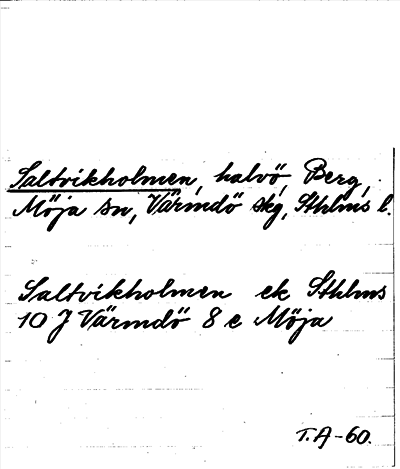 Saltvikholmen, halvö, Berg,
Möja sn, Värmdö skg, Sthlms l.
Saltvikholmen ek Sthlms
10 J Värmdö 8 e Möja
T.A-60.